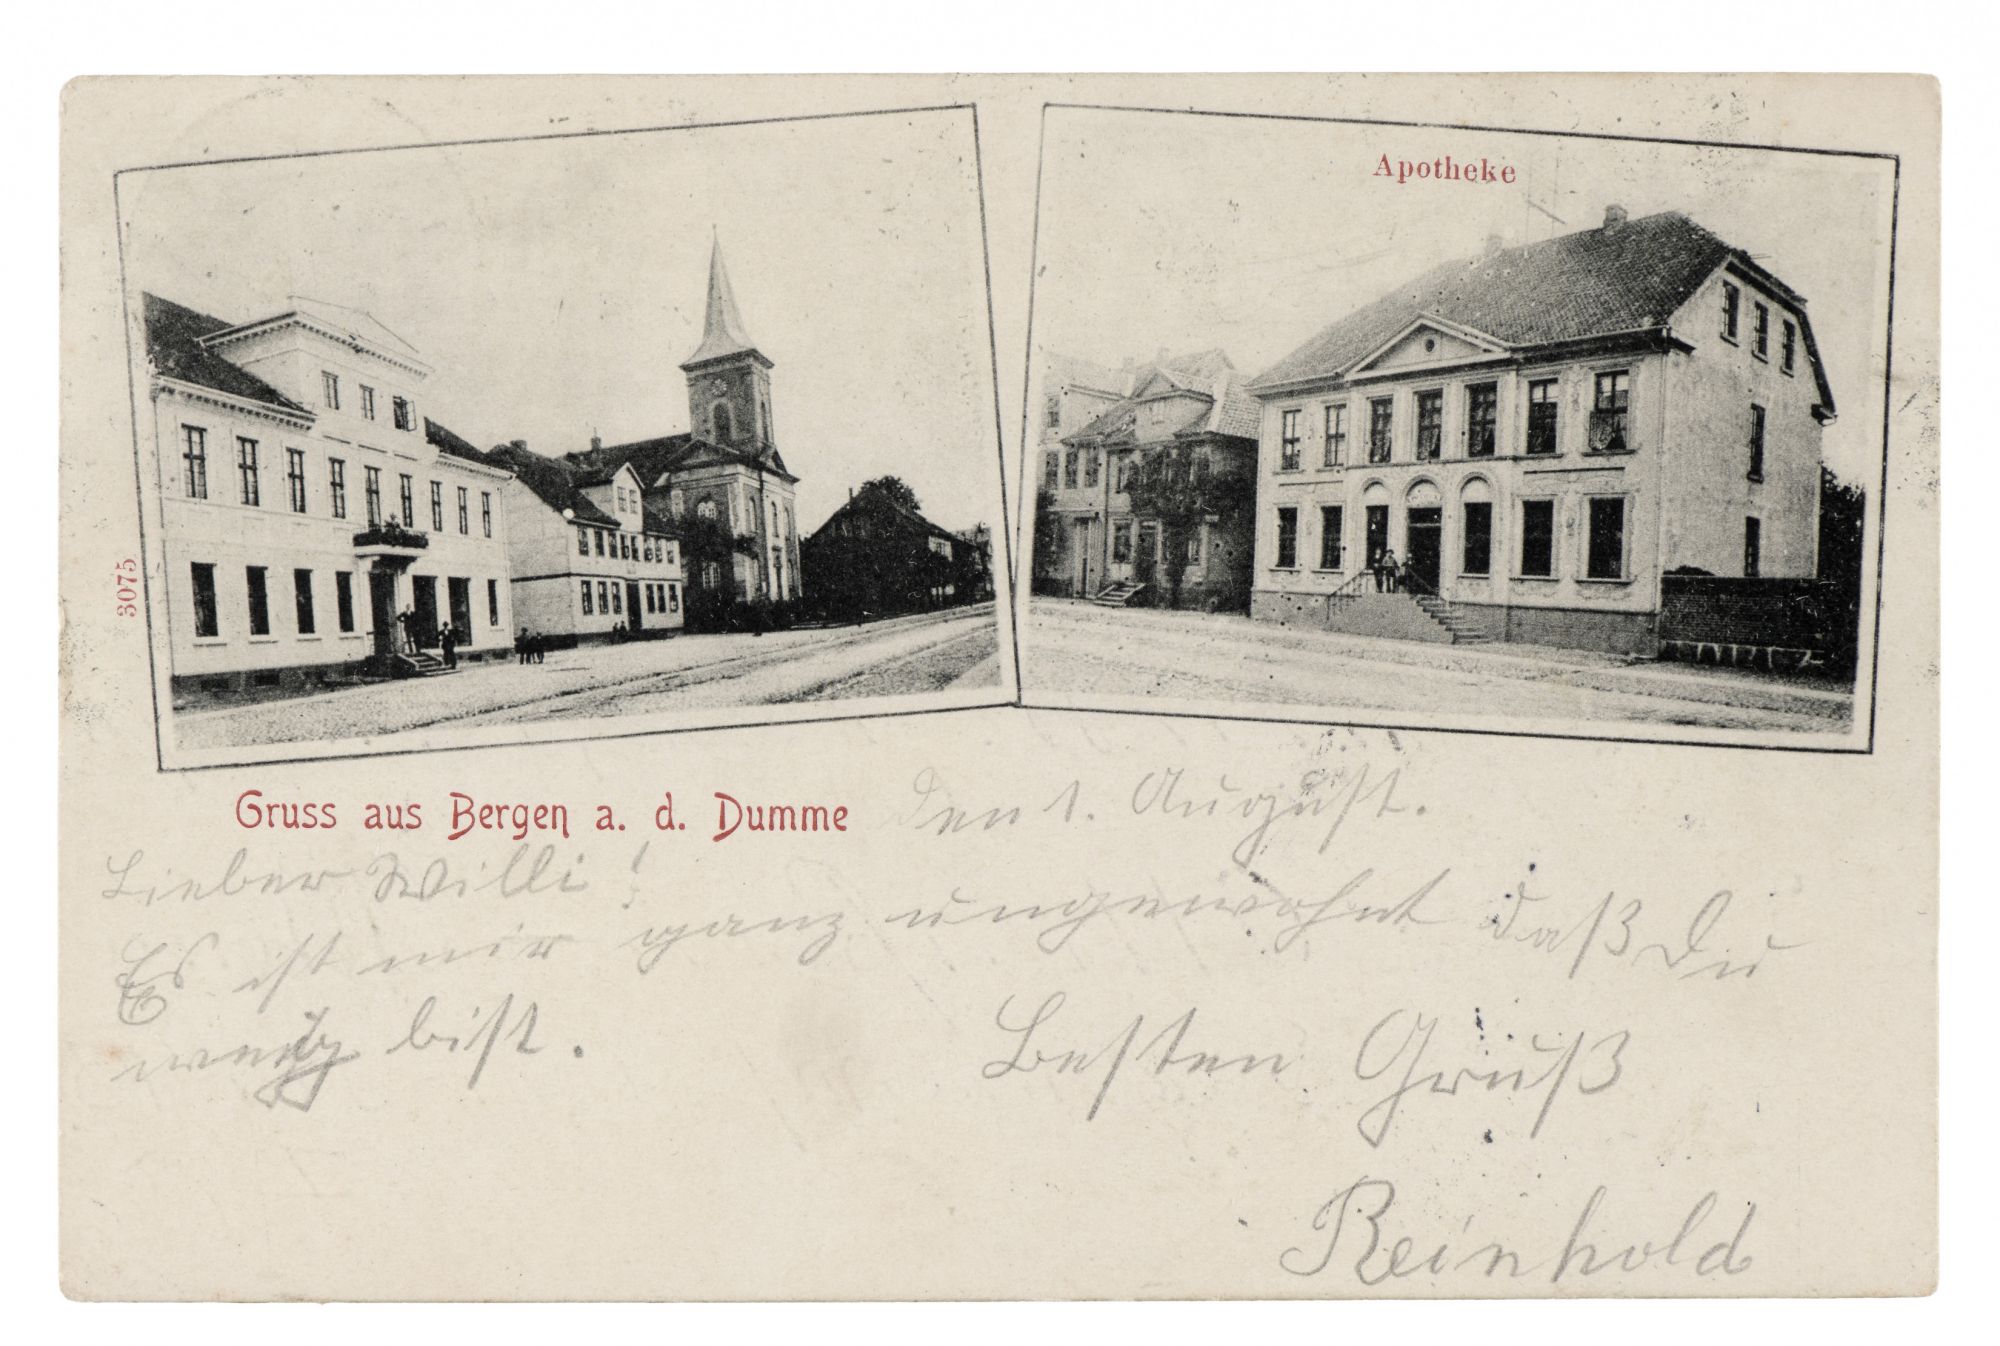 Apotheke
3075
Gruss aus Bergen a. d. Dumme
den 1. August.
Lieber Willi!
Es ist mir ganz ungewohnt daß Du
weg bist.
Besten Gruß
Reinhold